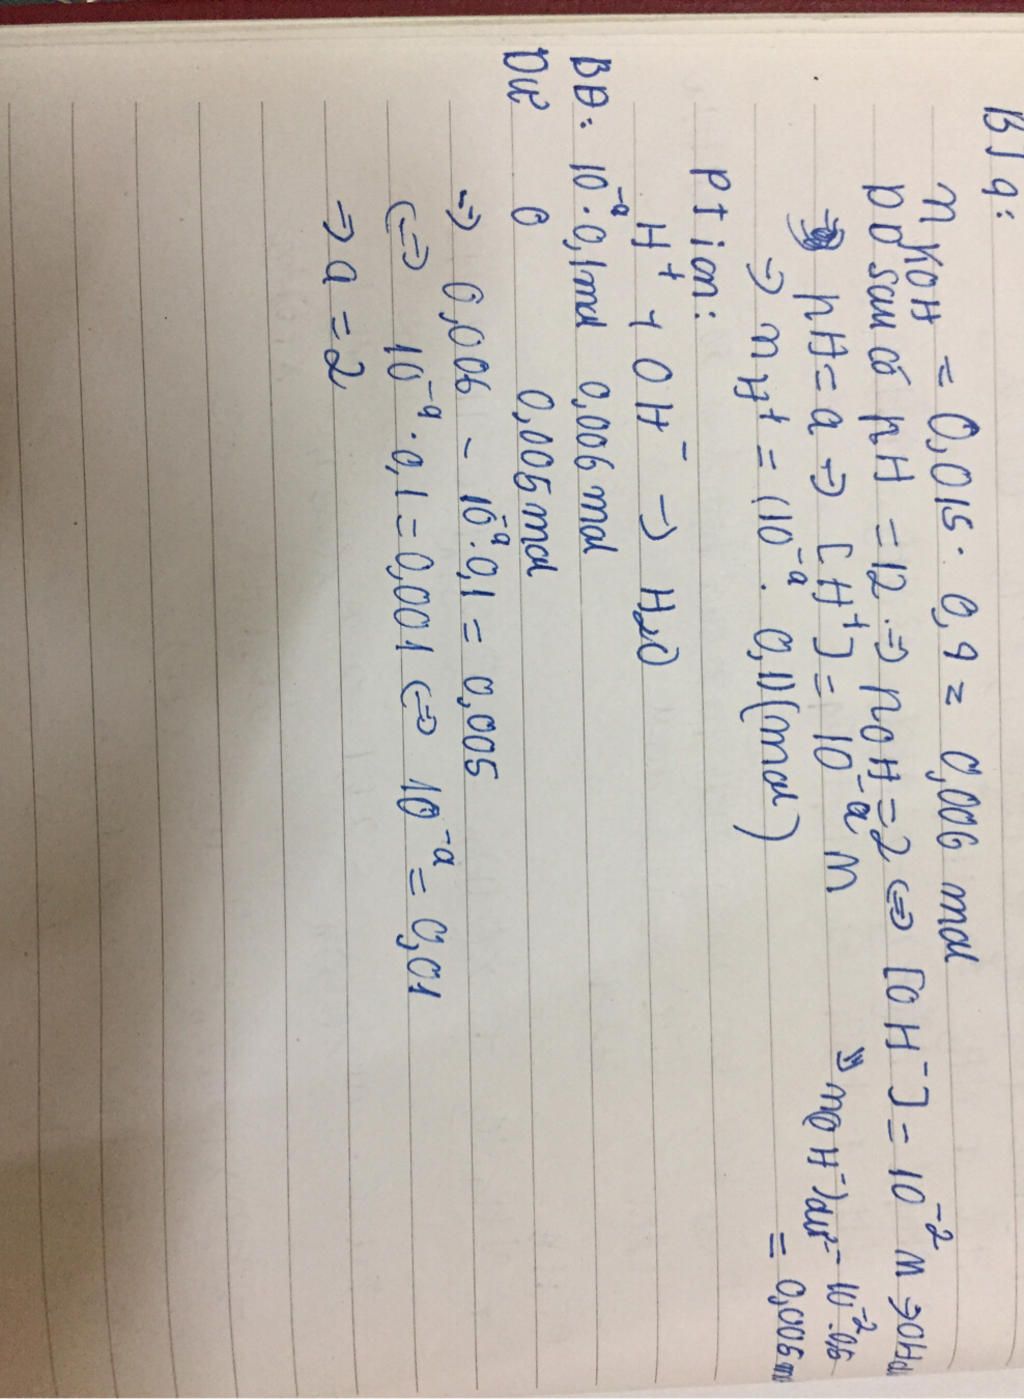 BT 9:
nKOH = 0,015. 0,4 = 0,006 mol
DD sau có pH = 12 => pOH = 2 <=> [OH⁻] = 10⁻² M => OH⁻ dư
pH = a => [H⁺] = 10⁻ᵃ M => nOH⁻ dư = 10⁻².0,5
=> nH⁺ = (10⁻ᵃ. 0,1) (mol) = 0,005 m
PT ion:
H⁺ + OH⁻ -> H₂O
BĐ: 10⁻ᵃ.0,1mol 0,006 mol
Dư 0 0,005mol
=> 0,006 - 10⁻ᵃ.0,1 = 0,005
<=> 10⁻ᵃ.0,1 = 0,001 <=> 10⁻ᵃ = 0,01
=> a = 2